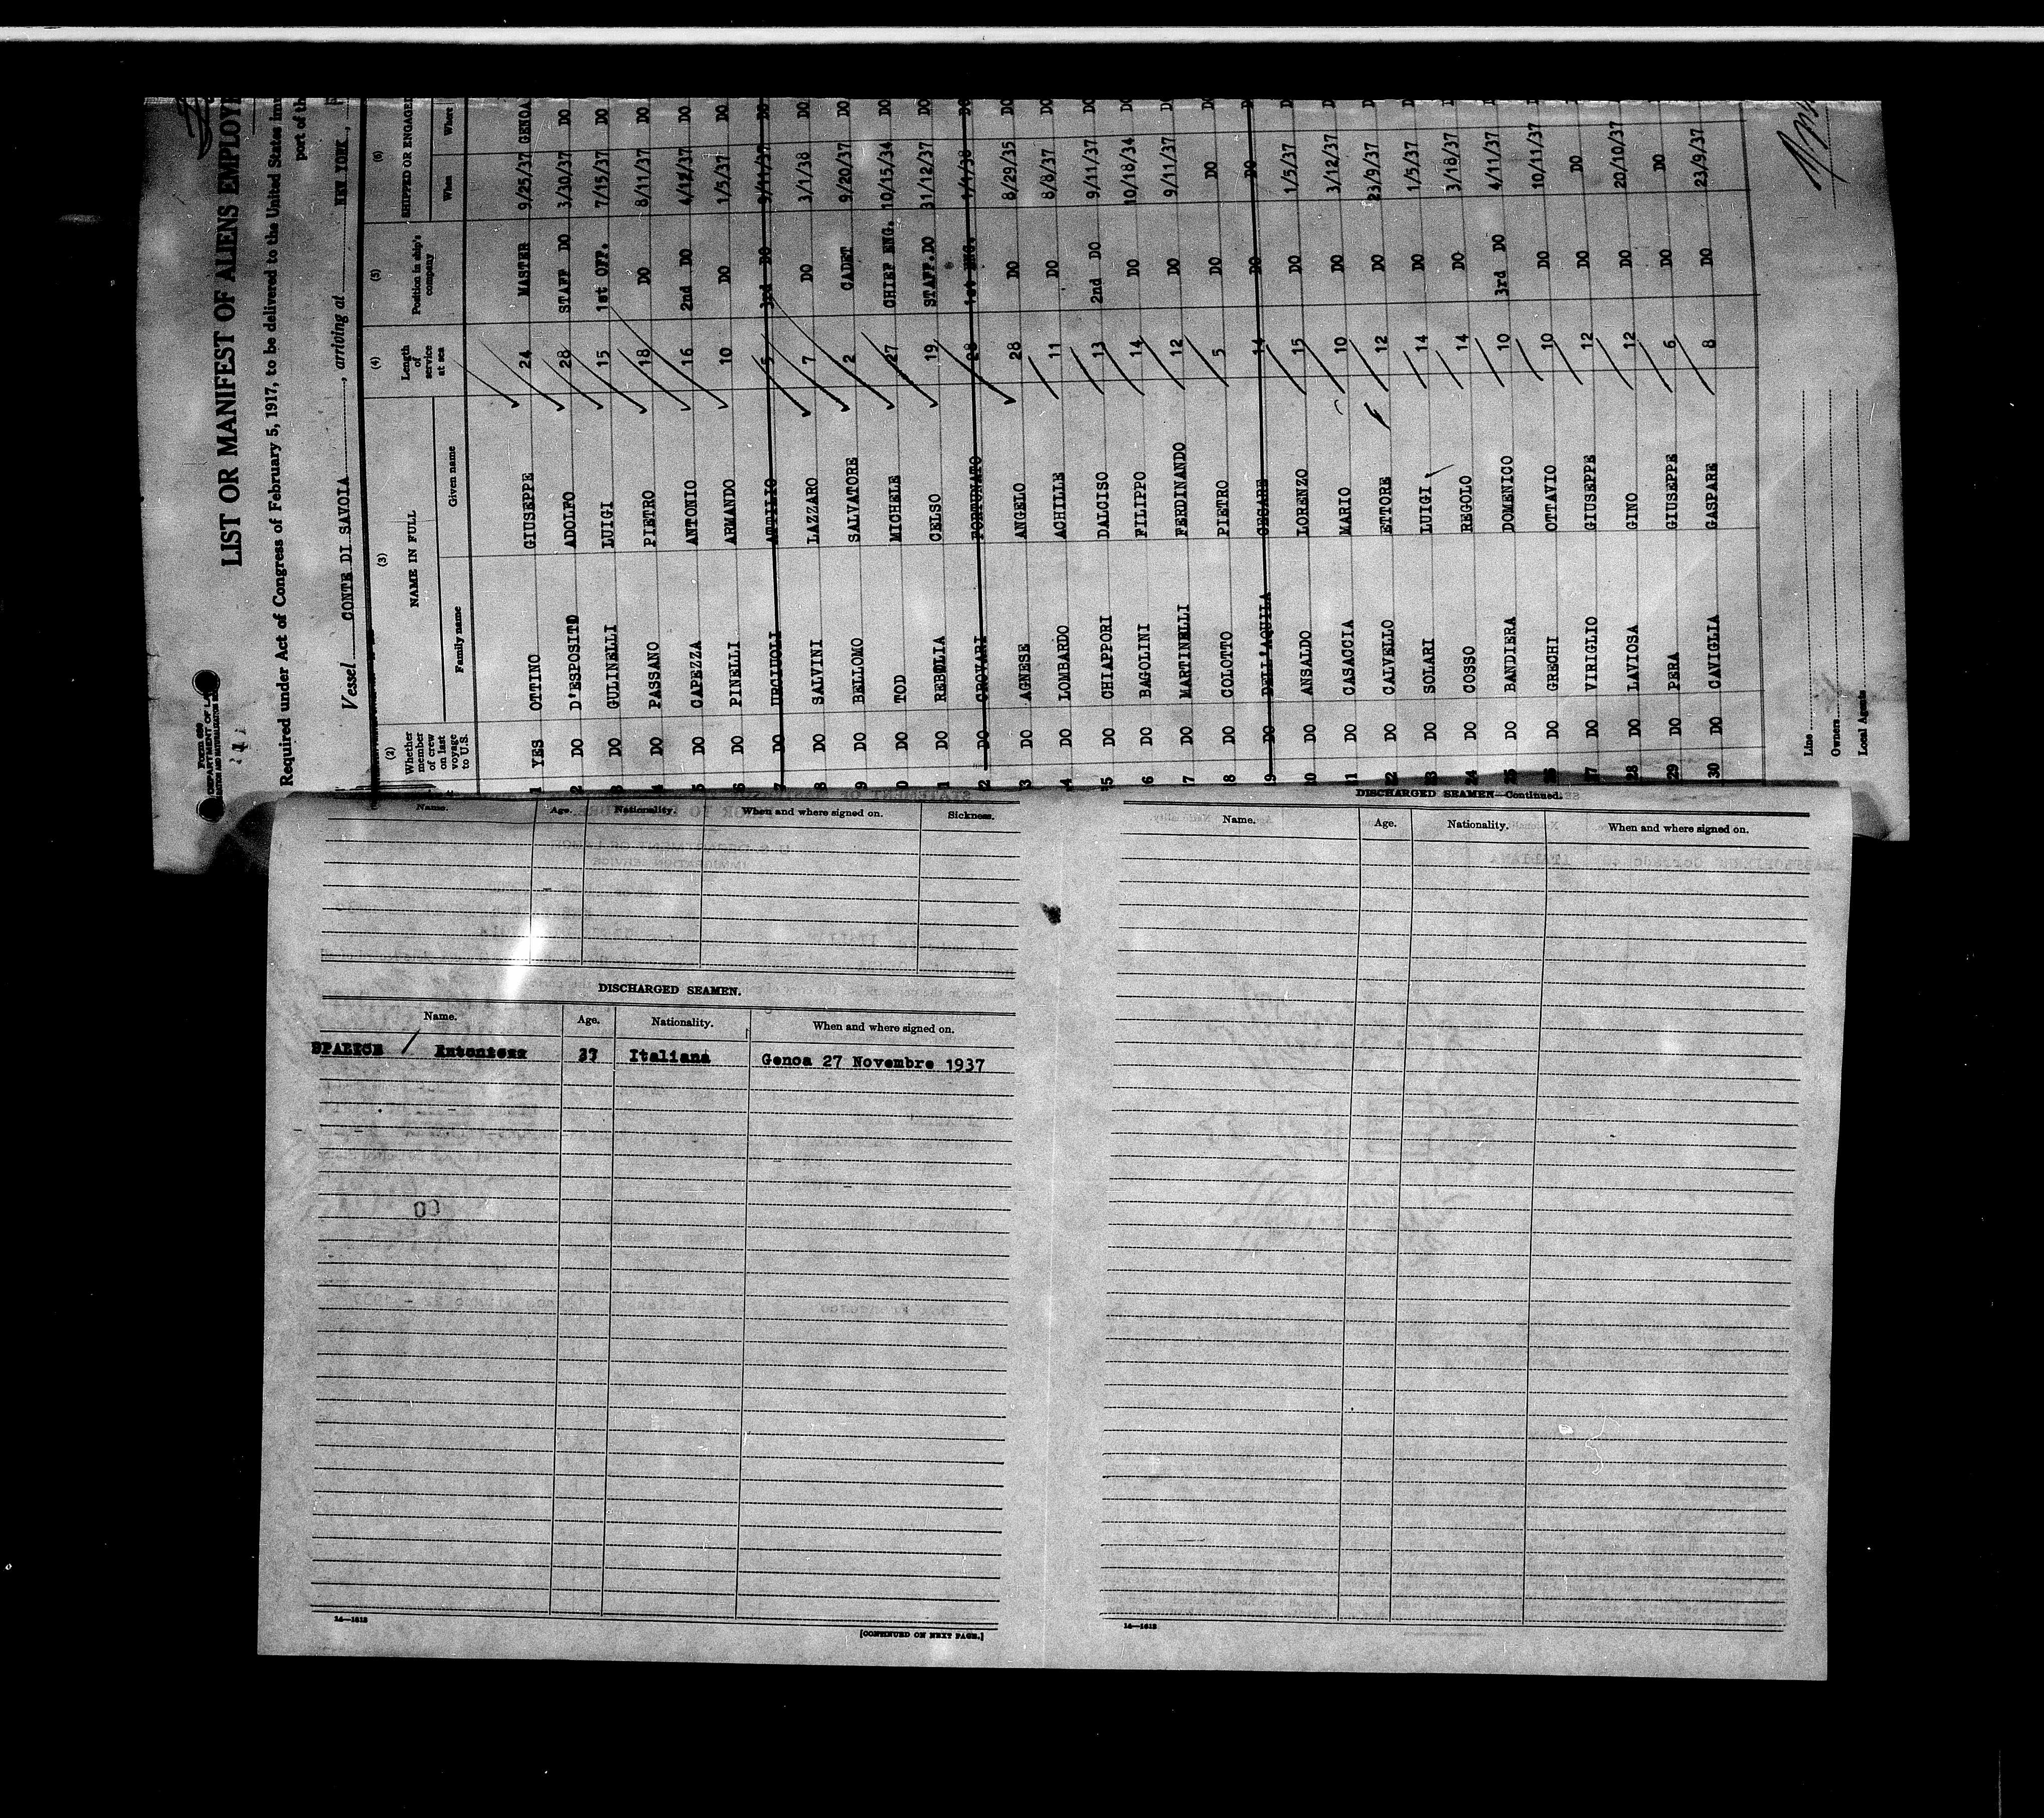 Form 689
DEPARTMENT OF
LIST OR MANIFEST OF ALIENS EMPLOY
Required under Act of Congress of February 5, 1917, to be delivered to the United States
port of
Vessel CONTE DI SAVOIA, arriving at NEW YORK,
(2) (3) (4) (5) (6)
Whether member of crew on last voyage to U.S. NAME IN FULL Length of service at sea Position in ship's company SHIPPED OR ENGAGED
Family name Given name When Where
1 YES OTTINO GIUSEPPE 24 MASTER 9/25/37 GENOA
2 DO D'ESPOSITO ADOLFO 28 STAFF DO 3/30/37 DO
3 DO GULINELLI LUIGI 15 1st OFF. 7/15/37 DO
4 DO PASSANO PIETRO 18 DO 8/11/37 DO
5 DO CAPEZZA ANTONIO 16 2nd DO 4/12/37 DO
6 DO PINELLI ARMANDO 10 DO 1/5/37 DO
7 DO URCIUOLI ATTILIO 5 3rd DO 9/11/37 DO
8 DO SALVINI LAZZARO 7 DO 3/1/38 DO
9 DO BELLOMO SALVATORE 2 CADET 9/20/37 DO
0 DO TOD MICHELE 27 CHIEF ENG. 10/15/34 DO
1 DO REBOLIA CELSO 19 STAFF.DO 31/12/37 DO
2 DO CROVARI FORTUNATO 28 1st ENG. 1/1/38 DO
3 DO AGNESE ANGELO 28 DO 8/29/35 DO
14 DO LOMBARDO ACHILLE 11 DO 8/8/37 DO
15 DO CHIAPPORI DALCISO 13 2nd DO 9/11/37 DO
6 DO BAGOLINI FILIPPO 14 DO 10/18/34 DO
17 DO MARTINELLI FERDINANDO 12 DO 9/11/37 D
18 DO COLOTTO PIETRO 5 DO DO D
19 DO DELL'AQUILA CESARE 14 DO DO D
20 DO ANSALDO LORENZO 15 DO 1/5/37 D
21 DO CASACCIA MARIO 10 DO 3/12/37 D
22 DO CALVELLO ETTORE 12 DO 23/9/37 D
23 DO SOLARI LUIGI 14 DO 1/5/37 D
24 DO COSSO REGOLO 14 DO 3/18/37 D
25 DO BANDIERA DOMENICO 10 3rd DO 4/11/37 D
26 DO GRECHI OTTAVIO 10 DO 10/11/37
27 DO VIRIGLIO GIUSEPPE 12 DO DO
28 DO LAVIOSA GINO 12 DO 20/10/37
29 DO PERA GIUSEPPE 6 DO DO
30 DO CAVIGLIA GASPARE 8 DO 23/9/37
Line
Owners
Local Agents
Name. Age. Nationality. When and where signed on. Sickness.
DISCHARGED SEAMEN.
Name. Age. Nationality. When and where signed on.
Italiana Genoa 27 Novembre 1937
14—1613
[CONTINUED ON NEXT PAGE.]
DISCHARGED SEAMEN—Continued.
Name. Age. Nationality. When and where signed on.
14—1613